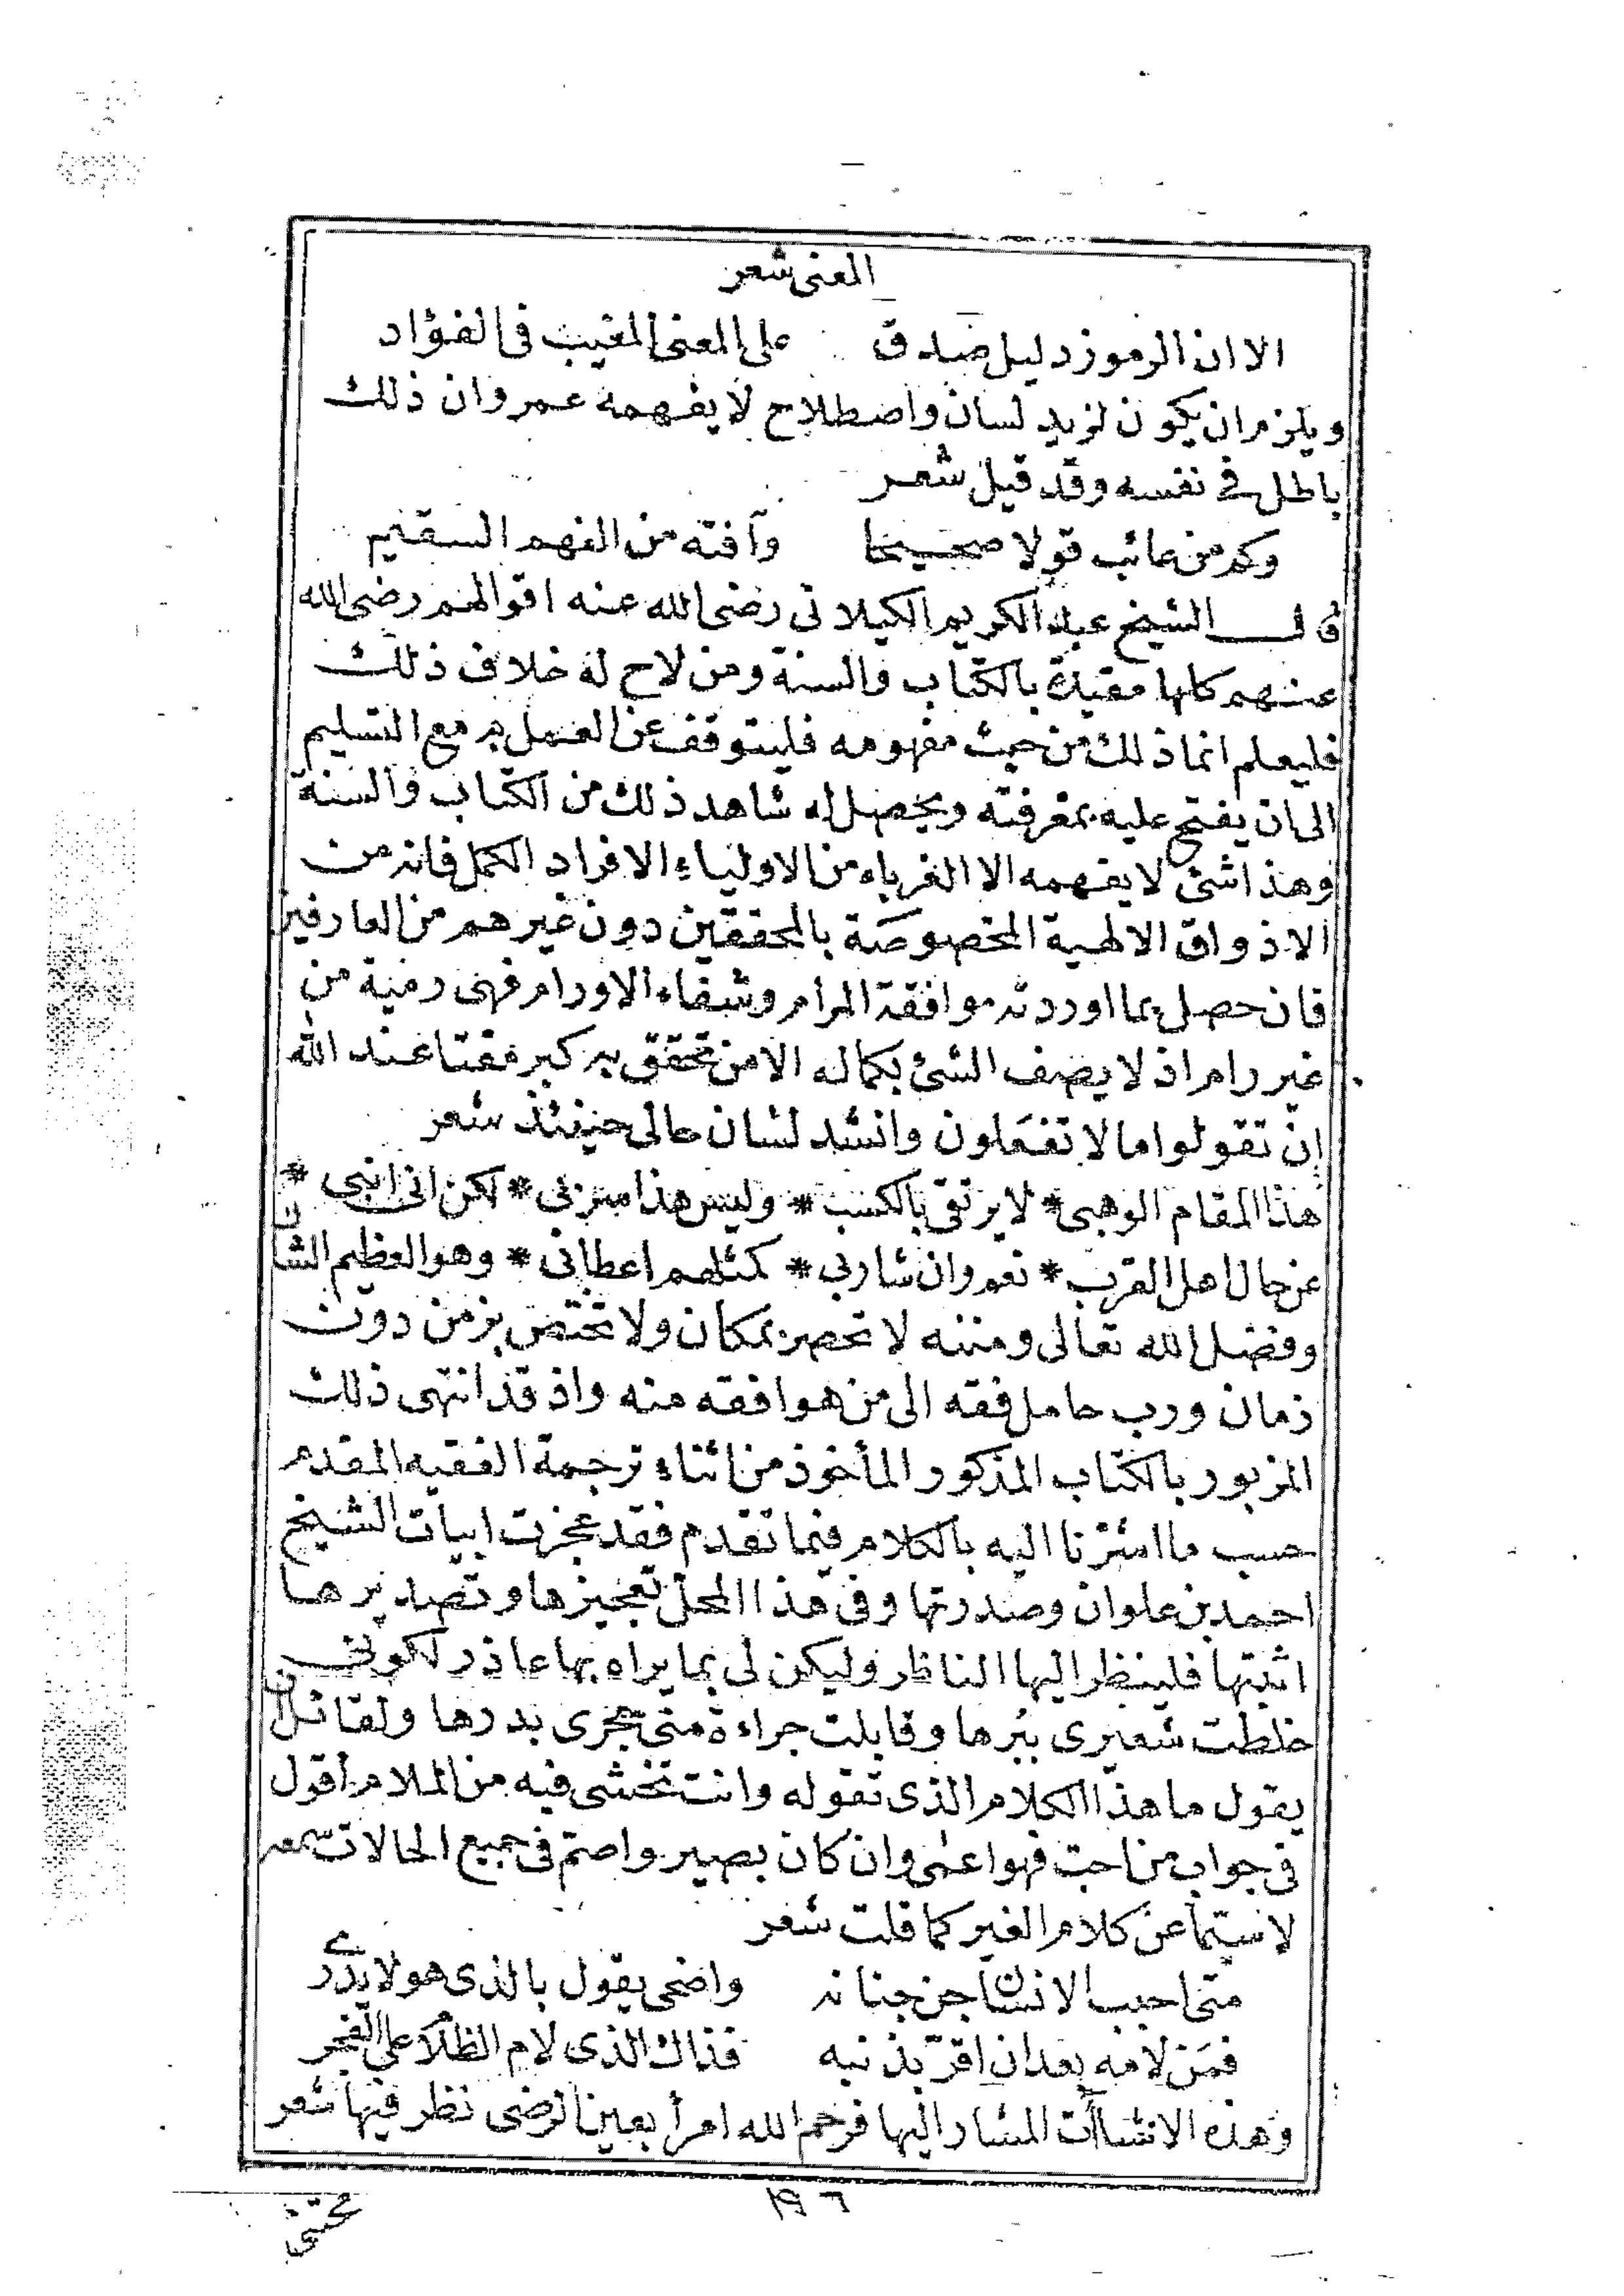 المعنى شعر
الا ان الرموز دليل صدق على المعنى المغيب فى الفؤاد
ويلزم ان يكون لزيد لسان واصطلاح لا يفهمه عمرو ان ذلك
باطل فى نفسه وقد قيل شعر
وكم من عائب قولا صحيحا وآفته من الفهم السقيم
قال الشيخ عبد الكريم الكيلانى رضى الله عنه اقوالهم رضى الله
عنهم كلها مقيدة بالكتاب والسنة ومن لاح له خلاف ذلك
فليعلم انما ذلك من حيث مفهومه فليتوقف عن العمل به مع التسليم
الى ان يفتح عليه بمعرفته ويحصل له شاهد ذلك من الكتاب والسنة
وهذا شئ لا يفهمه الا الغرباء من الاولياء الافراد الكمل فانه من
الاذواق الالهية المخصوصة بالمحققين دون غيرهم من العارفين
فان حصل بما اوردته موافقة المرام وشفاء الاورام فهى رمية من
غير رام اذ لا يصف الشئ بكماله الا من تحقق به كبر مقتا عند الله
ان تقولوا ما لا تفعلون وانشد لسان حالى حينئذ شعر
هذا المقام الوهبى * لا يرتقى بالكسب * وليس هذا سربى * لكن انى انبى *
عن حال اهل القرب * نعم وان شا ربى * كمثلهم اعطانى * وهو العظيم الشان
وفضل الله تعالى ومننه لا تحصر بمكان ولا تختص بزمن دون
زمان ورب حامل فقه الى من هو افقه منه واذ قد انتهى ذلك
المزبور بالكتاب المذكور المأخوذ من اثناء ترجمة الفقيه المقدم
حسب ما اشرنا اليه بالكلام فيما تقدم فقد عجزت ابيات الشيخ
احمد بن علوان وصدرتها وفى هذا المحل تعجيزها وتصديرها
اثبتها فلينظر اليها الناظر وليكن لى بما يراه بها عاذر لكونى
خلطت شعيرى ببرها وقابلت جراءة منى حجرى بدرها ولقائل ان
يقول ما هذا الكلام الذى تقوله وانت تخشى فيه من الملام أقول
فى جواب من احب فهو اعمى وان كان بصير واصم فى جميع الحالات سمعه
لا سيما عن كلام الغير كما قلت شعر
متى احبب الانسان جن جنانه واضحى يقول بالذى هو لا يدرى
فمن لامه بعد ان اقر بذنبه فذاك الذى لام الظلام على الفجر
وهذه الانشاآت المشار اليها فرحم الله امرأ بعين الرضى نظر فيها شعر
١٩٦